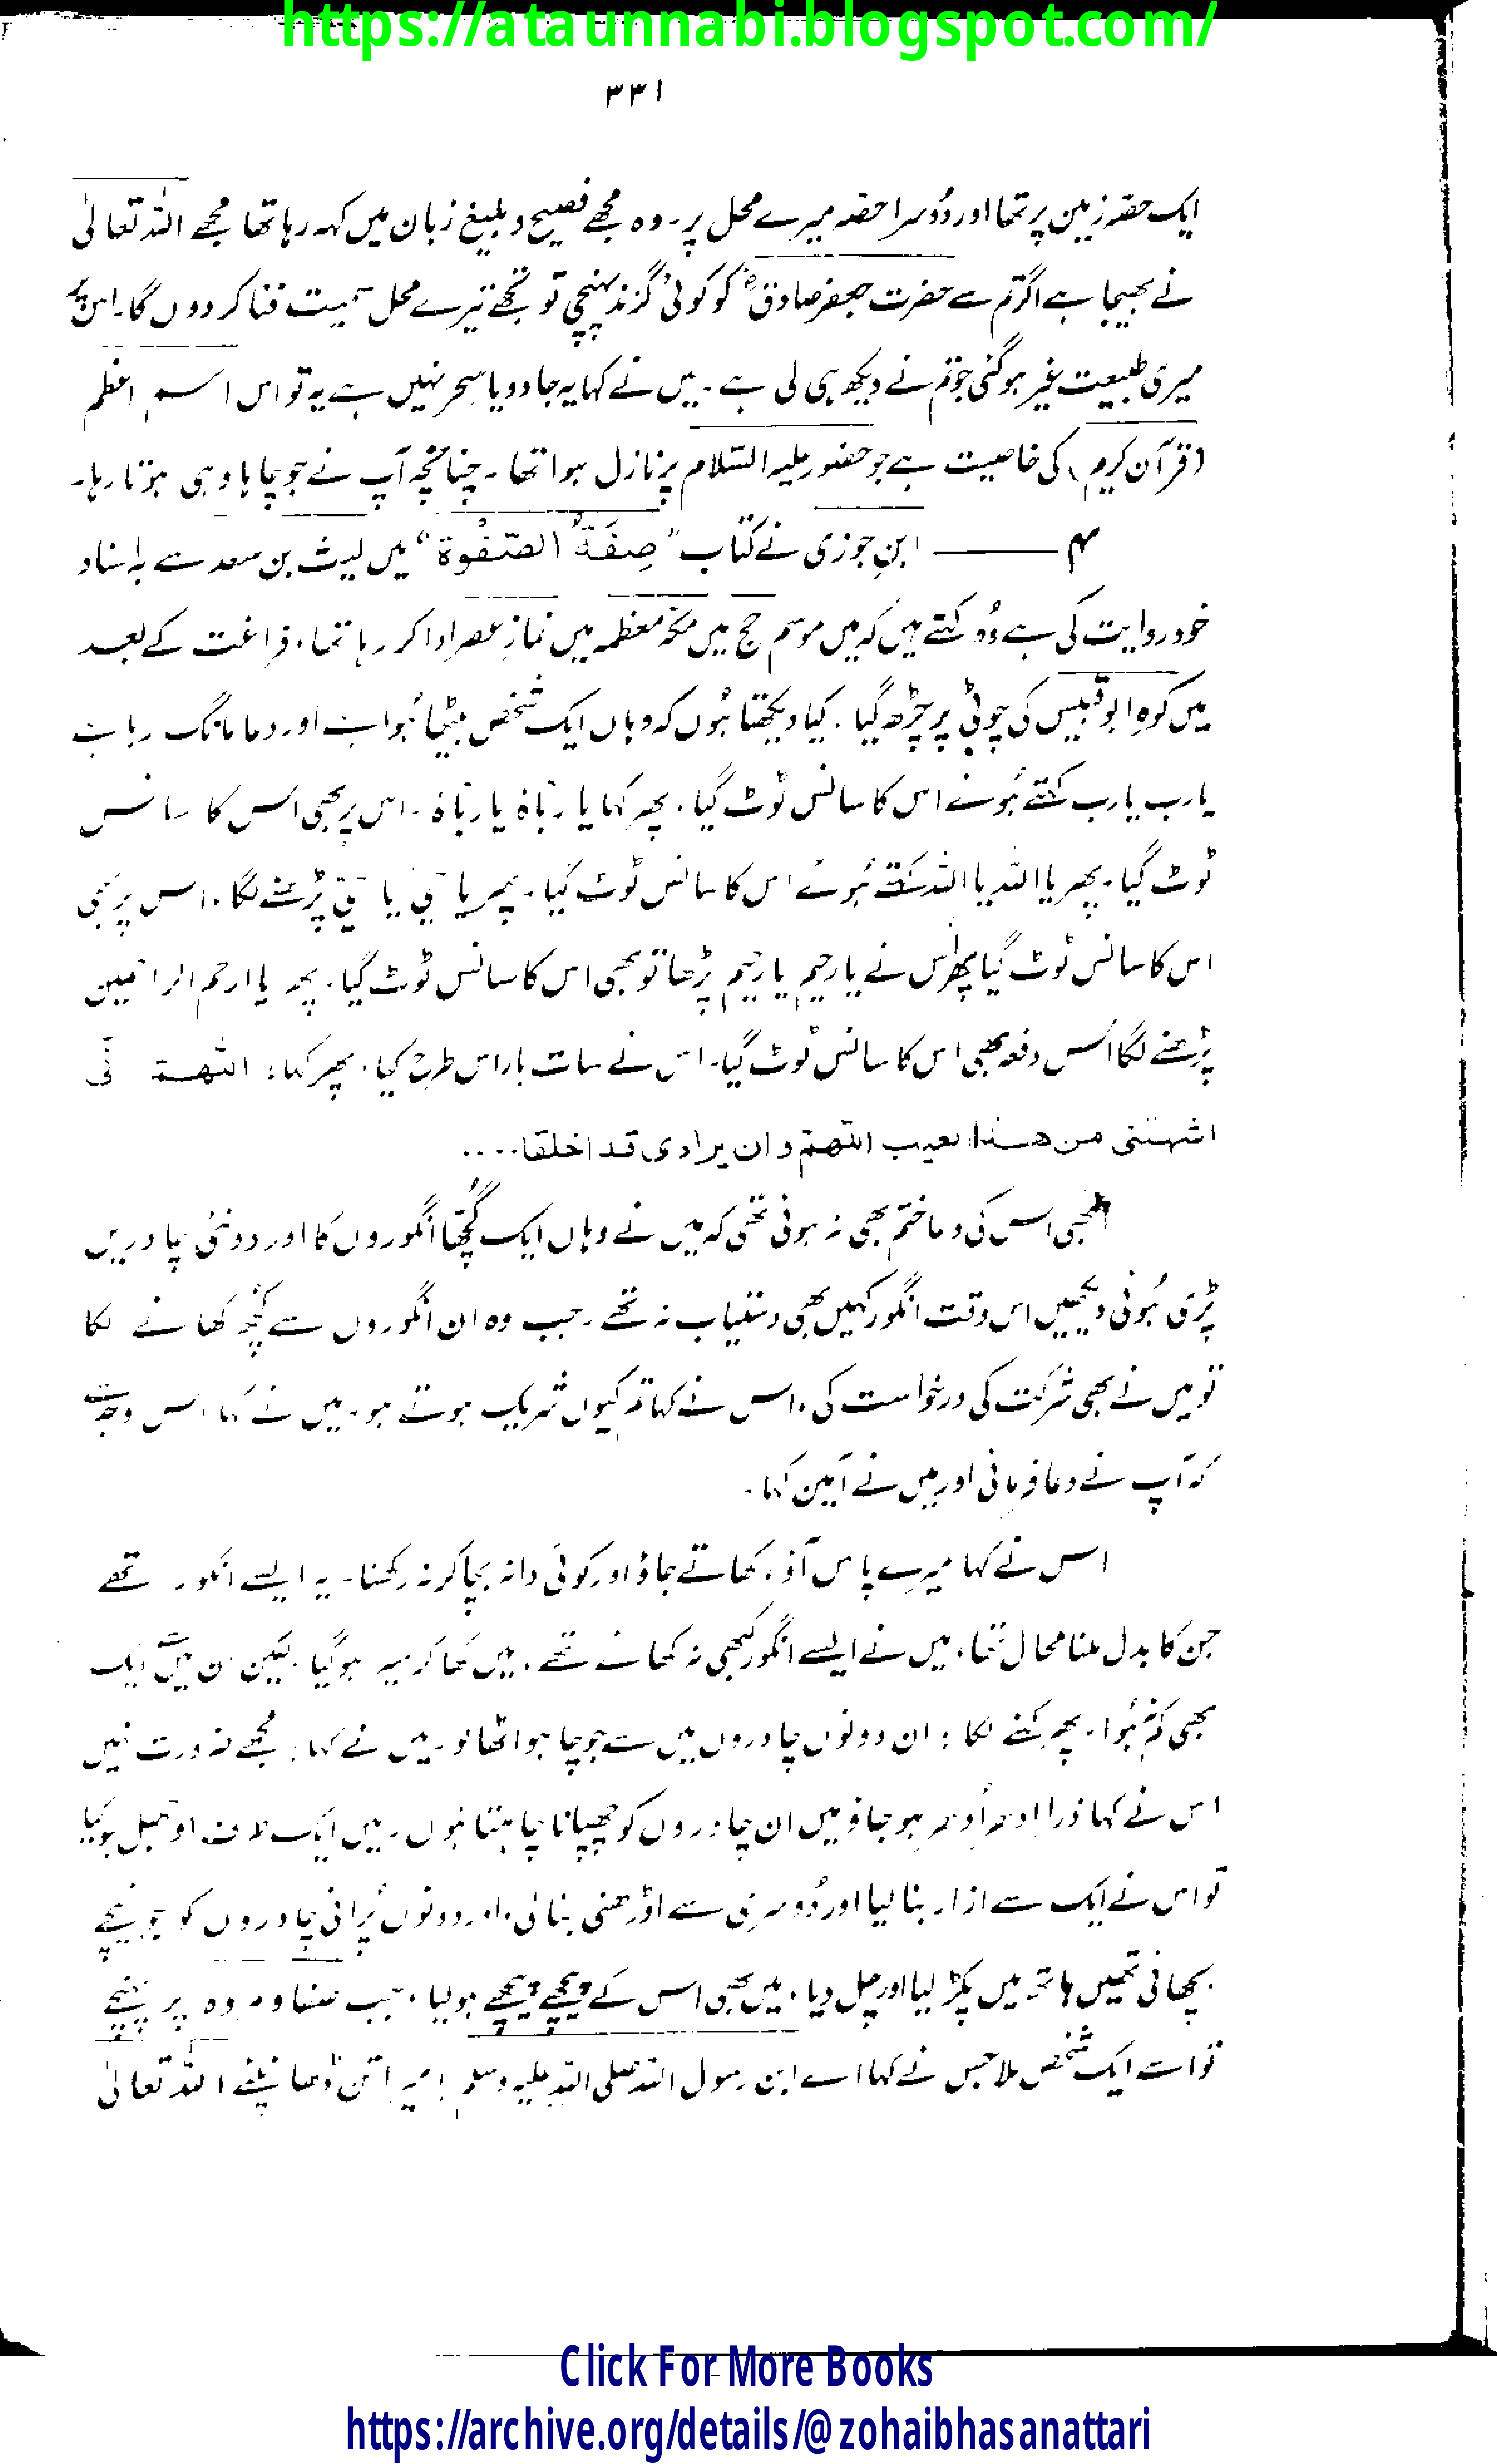 https://ataunnabi.blogspot.com/
۳۳۱
ایک حصہ زمین پر تھا اور دُوسرا حصہ میرے محل پر۔ وہ مجھے فصیح و بلیغ زبان میں کہہ رہا تھا مجھے اللہ تعالیٰ
نے بھیجا ہے اگر تم سے حضرت جعفر صادقؓ کو کوئی گزند پہنچی تو تجھے تیرے محل سمیت فنا کر دوں گا۔ اس پر
میری طبیعت غیر ہوگئی جو تم نے دیکھ ہی لی ہے۔ میں نے کہا یہ جادو یا سحر نہیں ہے یہ تو اس اسم اعظم
(قرآن کریم) کی خاصیت ہے جو حضور علیہ السّلام پر نازل ہوا تھا۔ چنانچہ آپ نے جو چاہا وہی ہوتا رہا۔
۴ ——— ابنِ جوزی نے کتاب "صِفَۃُ الصّفْوۃ" میں لیث بن سعد سے بہ اسناد
خود روایت کی ہے وُہ کہتے ہیں کہ میں موسم حج میں مکّہ معظمہ میں نمازِ عصر ادا کر رہا تھا، فراغت کے بعد
میں کوہِ ابو قبیس کی چوٹی پر چڑھ گیا۔ کیا دیکھتا ہُوں کہ وہاں ایک شخص بیٹھا ہُوا ہے اور دعا مانگ رہا ہے
یارب یارب کہتے ہُوئے اس کا سانس ٹوٹ گیا۔ پھر کہا یا ربّاہ یا ربّاہ۔ اس پر بھی اس کا سانس
ٹوٹ گیا۔ پھر یا اللہ یا اللہ کہتے ہُوئے اس کا سانس ٹوٹ گیا۔ پھر یا حیّ یا حیّ پڑھنے لگا۔ اس پر بھی
اس کا سانس ٹوٹ گیا پھر اس نے یا رحیم یا رحیم پڑھا تو بھی اس کا سانس ٹوٹ گیا۔ پھر یا ارحم الراحمین
پڑھنے لگا اس دفعہ بھی اس کا سانس ٹوٹ گیا۔ اس نے سات بار اس طرح کیا۔ پھر کہا: اللّٰھمّ نّی
اشہتنی من ھٰذا لعیب اللّٰھمّ و ان یرادی قد اخلقا....
ابھی اس کی دعا ختم بھی نہ ہوئی تھی کہ میں نے وہاں ایک گُچّھا انگوروں کا اور دو نئی چادریں
پڑی ہُوئی دیکھیں اس وقت انگور کہیں بھی دستیاب نہ تھے۔ جب وہ ان انگوروں سے کُچھ کھانے لگا
تو میں نے بھی شرکت کی درخواست کی۔ اس نے کہا تم کیوں شریک ہوتے ہو۔ میں نے کہا، اس وجہ سے
کہ آپ نے دعا فرمائی اور میں نے آمین کہا۔
اس نے کہا میرے پاس آؤ، کھاتے جاؤ اور کوئی دانہ بچا کر نہ رکھنا۔ یہ ایسے انگور تھے
جن کا بدل ملنا محال تھا، میں نے ایسے انگور کبھی نہ کھائے تھے، میں کھا کر سیر ہوگیا۔ لیکن ان میں سے ایک
بھی کم نہ ہُوا۔ پھر کہنے لگا: ان دونوں چادروں میں سے جو چاہو اٹھا لو۔ میں نے کہا: مجھے ضرورت نہیں
اس نے کہا ذرا اِدھر اُدھر ہو جاؤ میں ان چادروں کو چھپانا چاہتا ہُوں۔ میں ایک طرف اوجھل ہوگیا
تو اس نے ایک سے ازار بنا لیا اور دُوسری سے اوڑھنی بنائی، اور دونوں پُرانی چادروں کو جو نیچے
بچھائی تھیں ہاتھ میں پکڑ لیا اور چل دیا، میں بھی اس کے پیچھے پیچھے ہو لیا، جب صفا و مروہ پر پہنچے
تو اسے ایک شخص ملا جس نے کہا اے ابن رسول اللہ صلی اللہ علیہ وسلم! میرا تن ڈھانپئے اللہ تعالیٰ
Click For More Books
https://archive.org/details/@zohaibhasanattari